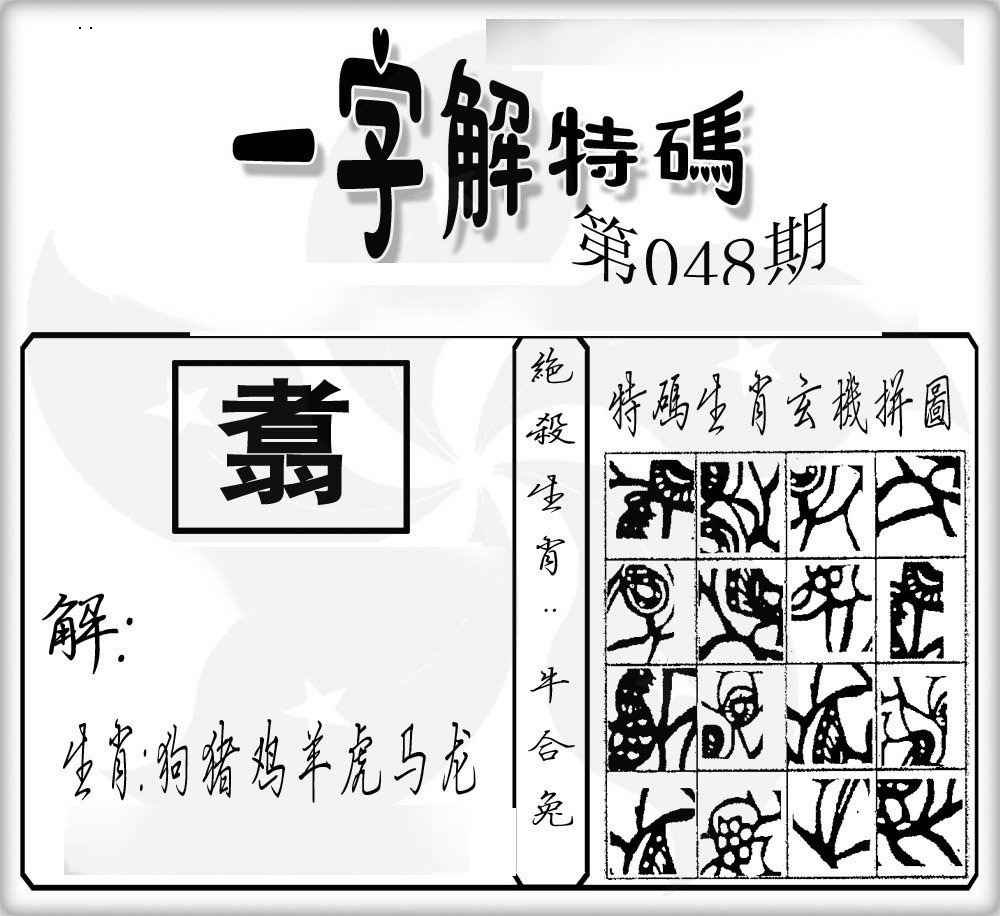 一字解特碼
第048期
翥
解:
生肖:狗猪鸡羊虎马龙
絶殺生肖:牛合兔
特碼生肖玄機拼圖